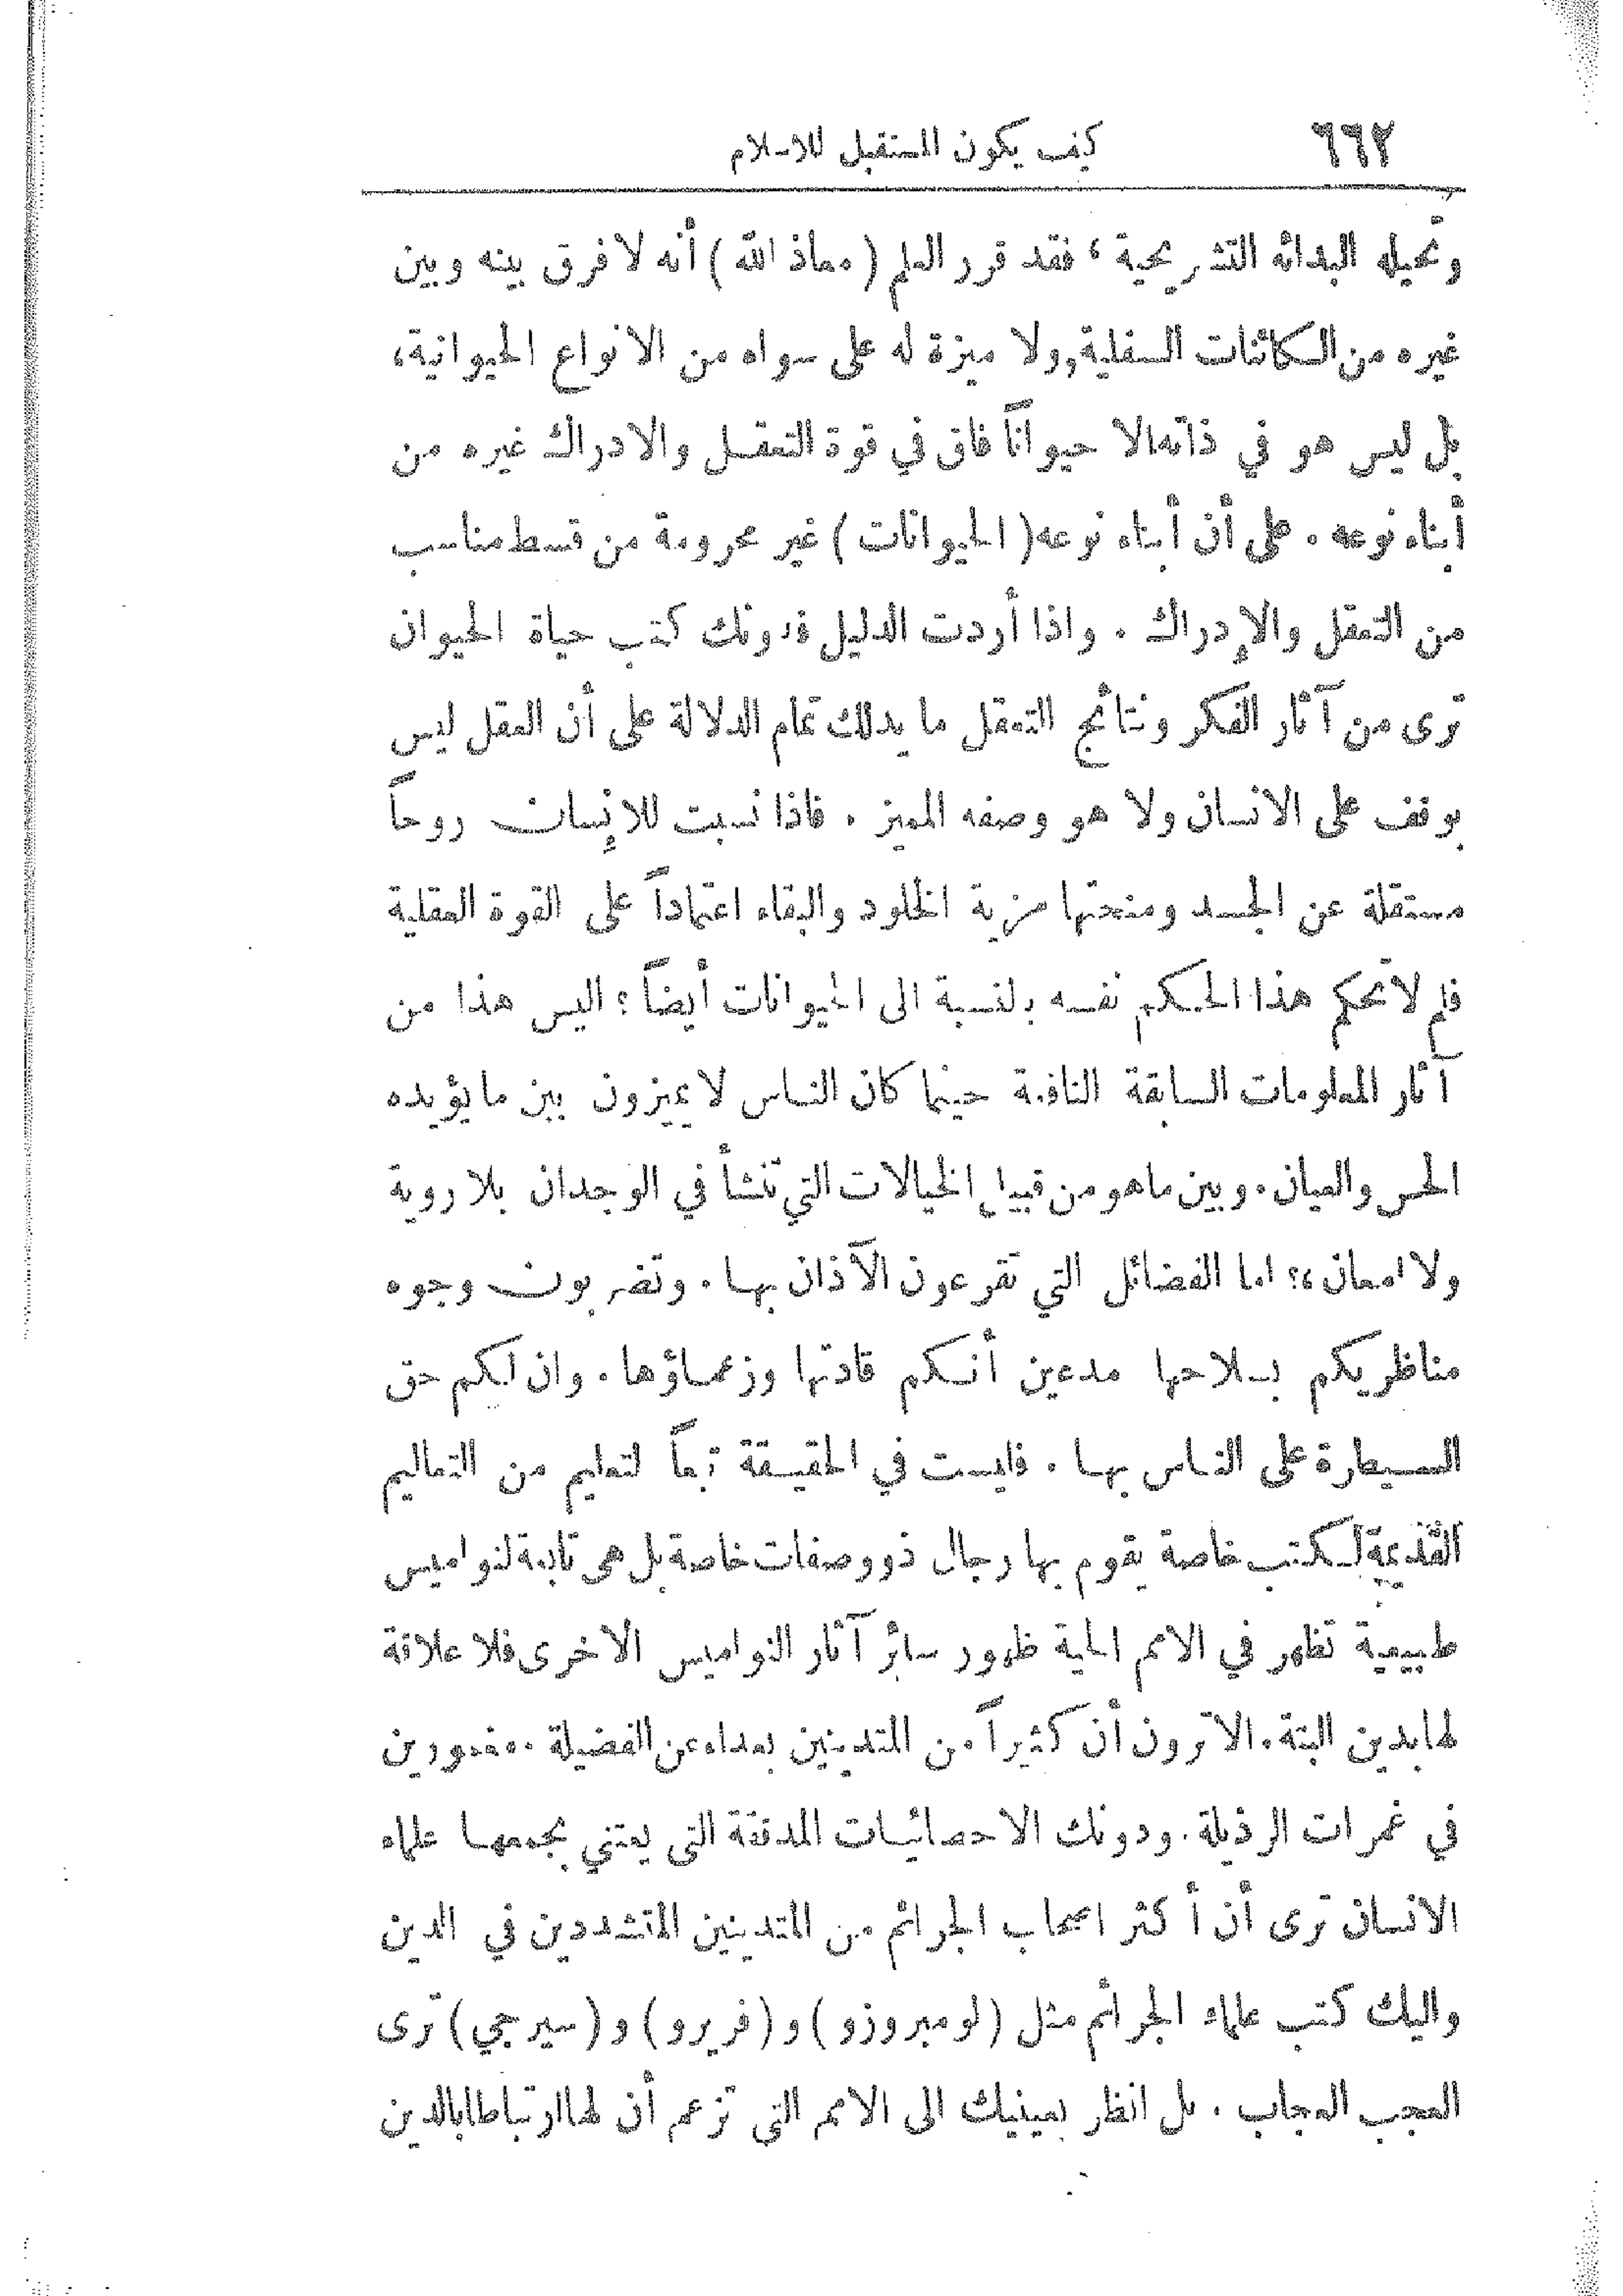 ٦٦٢ كيف يكون المستقبل للاسلام
وتحيله البدائه التشريحية ، فقد قرر العلم ( معاذ الله ) أنه لا فرق بينه وبين
غيره من الكائنات السفلية , ولا ميزة له على سواه من الانواع الحيوانية ،
بل ليس هو في ذاته الا حيواناً فاق في قوة التعقل والادراك غيره من
أبناء نوعه . على أن أبناء نوعه ( الحيوانات ) غير محرومة من قسط مناسب
من التعقل والإدراك . واذا أردت الدليل فدونك كتب حياة الحيوان
ترى من آثار الفكر ونتائج التعقل ما يدلك تمام الدلالة على أن العقل ليس
بوقف على الانسان ولا هو وصفه المميز . فاذا نسبت للإنسان روحاً
مستقلة عن الجسد ومنحتها مزية الخلود والبقاء اعتماداً على القوة العقلية
فلم لا تحكم هذا الحكم نفسه بالنسبة الى الحيوانات أيضاً ؛ اليس هذا من
آثار المعلومات السابقة الناقصة حينما كان الناس لا يميزون بين ما يؤيده
الحس والعيان . وبين ما هو من قبيل الخيالات التي تنشأ في الوجدان بلا روية
ولا امعان ،؟ اما الفضائل التي تقرعون الآذان بها . وتضربون وجوه
مناظريكم بسلاحها مدعين أنكم قادتها وزعماؤها . وان لكم حق
السيطرة على الناس بها . فليست في الحقيقة تبعاً لتعليم من التعاليم
القديمة لكتب خاصة يقوم بها رجال ذوو صفات خاصة بل هي تابعة لنواميس
طبيعية تظهر في الامم الحية ظهور سائر آثار النواميس الاخرى فلا علاقة
لها بدين البتة . الا ترون أن كثيراً من المتدينين بعداء عن الفضيلة . مغمورين
في غمرات الرذيلة . ودونك الاحصائيات المدققة التي يعتني بجمعها علماء
الانسان ترى أن أكثر اصحاب الجرائم من المتدينين المتشددين في الدين
واليك كتب علماء الجرائم مثل ( لومبروزو ) و ( فريرو ) و ( سيرجي ) ترى
العجب العجاب . بل انظر بعينيك الى الامم التي تزعم أن لها ارتباطا بالدين